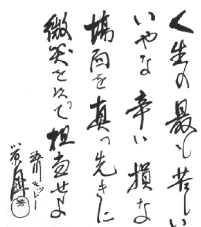 人生の最も苦しい
いやな 辛い 損な
場面を真っ先きに
微笑を以って担当せよ